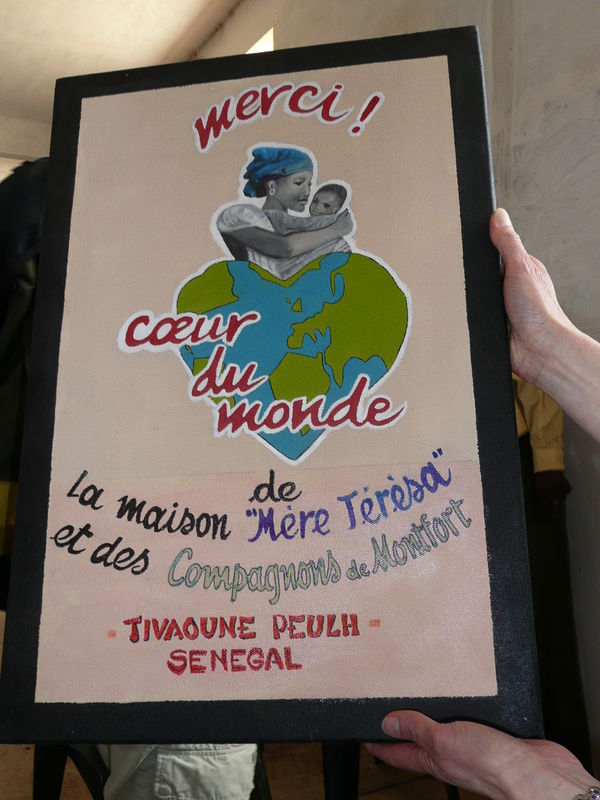 merci!
cœur
du
monde
de
La maison "Mère Térèsa"
et des Compagnons de Montfort
- TIVAOUNE PEULH -
SENEGAL